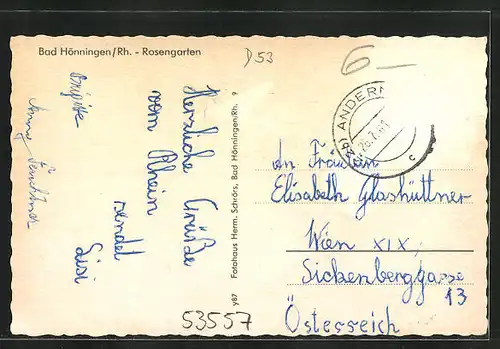 Bad Hönningen/Rh. - Rosengarten
D 53
6 —
ANDERN
26.7.61
c
Herzliche Grüße
vom Rhein
sendet
Sisi
Brigitte
An Fräulein
Elisabeth Glashüttner
Wien XIX,
Sickenberggasse
13
Österreich
y87 Fotohaus Herm. Schrörs, Bad Hönningen/Rh. 9
53557